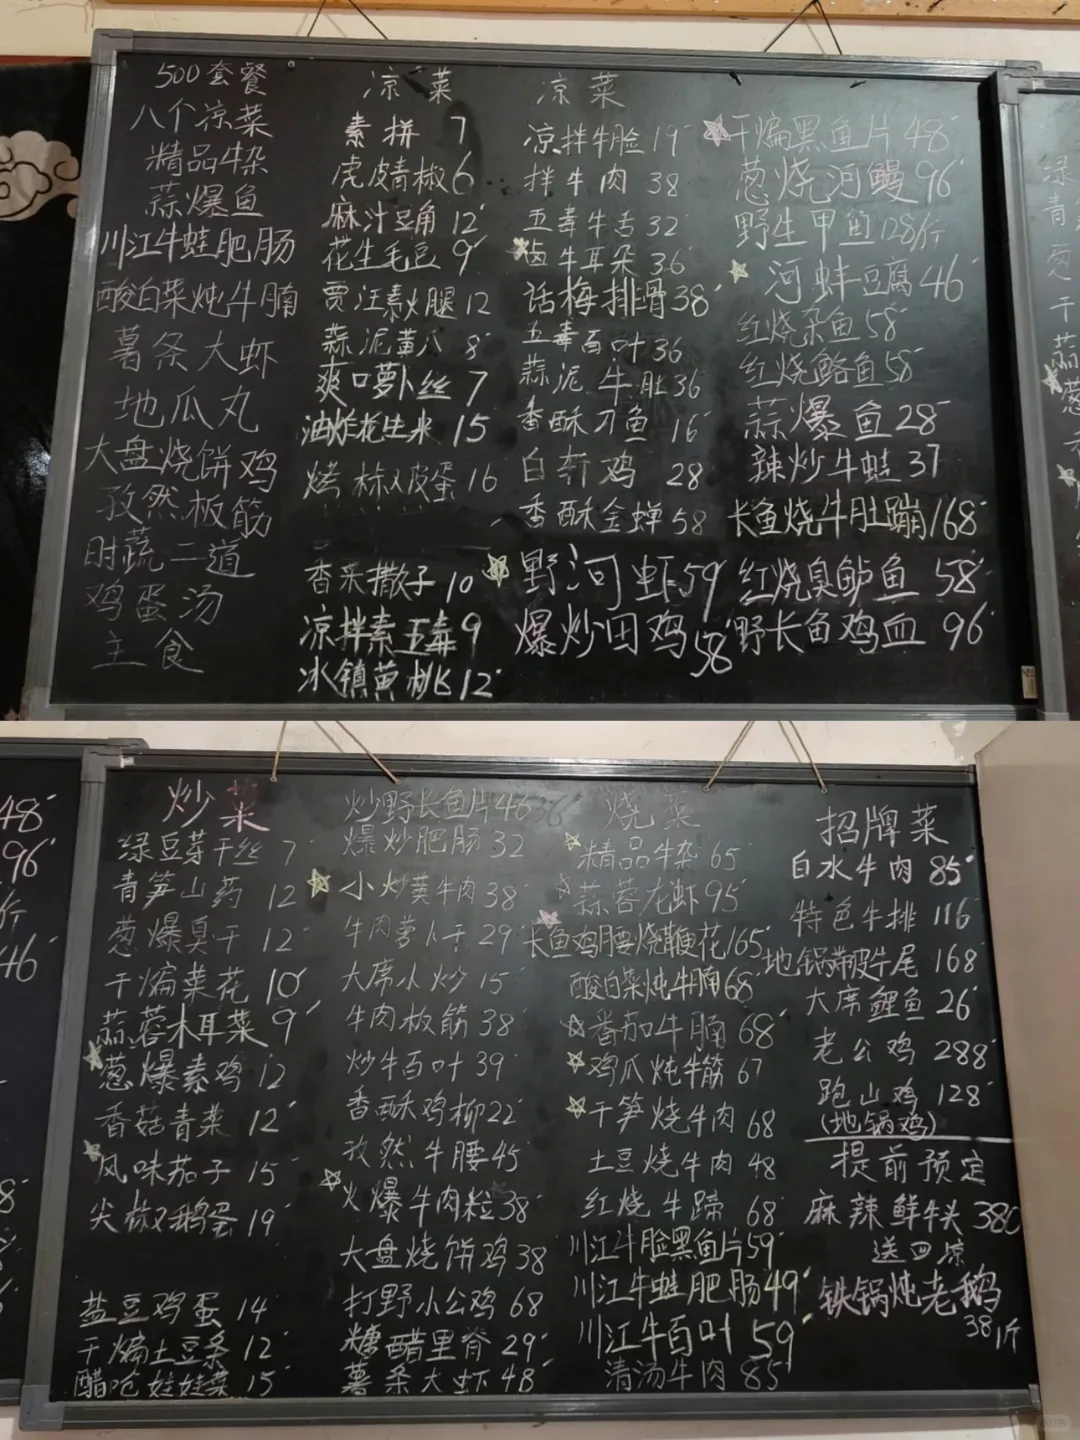 500套餐
八个凉菜
精品牛杂
蒜爆鱼
川江牛蛙肥肠
酸白菜炖牛腩
薯条大虾
地瓜丸
大盘烧饼鸡
孜然板筋
时蔬二道
鸡蛋汤
主食
凉菜
素拼 7
虎皮青椒 6
麻汁豆角 12
花生毛豆 9
贾汪素火腿 12
蒜泥黄瓜 8
爽口萝卜丝 7
油炸花生米 15
烤椒皮蛋 16
香采撒子 10
凉拌素五毒 9
冰镇黄桃 12
凉菜
凉拌牛脸 19
拌牛肉 38
五毒牛舌 32
卤牛耳朵 36
话梅排骨 38
五毒百叶 36
蒜泥牛肚 36
香酥刁鱼 16
白斩鸡 28
香酥金蝉 58
野河虾 59
爆炒田鸡 58
干煸黑鱼片 48
葱烧河鳗 96
野生甲鱼 128/斤
河蚌豆腐 46
红烧杂鱼 58
红烧鲶鱼 58
蒜爆鱼 28
辣炒牛蛙 37
长鱼烧牛肚蹦 168
红烧臭鲈鱼 58
野长鱼鸡血 96
绿
青
葱
干
蒜
葱
48
96
斤
46
炒菜
绿豆芽干丝 7
青笋山药 12
葱爆臭干 12
干煸菜花 10
蒜蓉木耳菜 9
葱爆素鸡 12
香菇青菜 12
风味茄子 15
尖椒鹅蛋 19
盐豆鸡蛋 14
干煸土豆条 12
醋呛娃娃菜 15
炒野长鱼片 46
爆炒肥肠 32
小炒黄牛肉 38
牛肉萝卜干 29
大席小炒 15
牛肉板筋 38
炒牛百叶 39
香酥鸡柳 22
孜然牛腰 45
火爆牛肉粒 38
大盘烧饼鸡 38
打野小公鸡 68
糖醋里脊 29
薯条大虾 48
烧菜
精品牛杂 65
蒜蓉龙虾 95
长鱼鸡腰烧鞭花 165
酸白菜炖牛腩 68
番茄牛腩 68
鸡爪炖牛筋 67
干笋烧牛肉 68
土豆烧牛肉 48
红烧牛蹄 68
川江牛脸黑鱼片 59
川江牛蛙肥肠 49
川江牛百叶 59
清汤牛肉 85
招牌菜
白水牛肉 85
特色牛排 116
地锅带皮牛尾 168
大席鲤鱼 26
老公鸡 288
跑山鸡 128
(地锅鸡)
提前预定
麻辣鲜牛头 380
送四凉
铁锅炖老鹅
38/斤